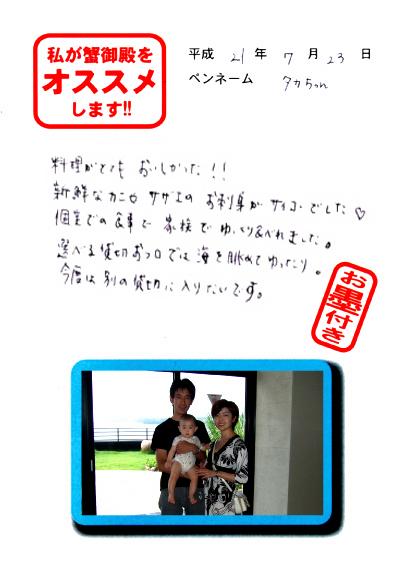 私が蟹御殿を
オススメ
します!!
平成 21 年 7 月 23 日
ペンネーム タカちゃん
料理がとても おいしかった!!
新鮮なカニや サザエの お刺身が サイコーでした♡
個室での食事で 家族で ゆっくり食べれました。
選べる貸切おフロでは 海を眺めて ゆったり。
今度は 別の 貸切に入りたいです。
お墨付き